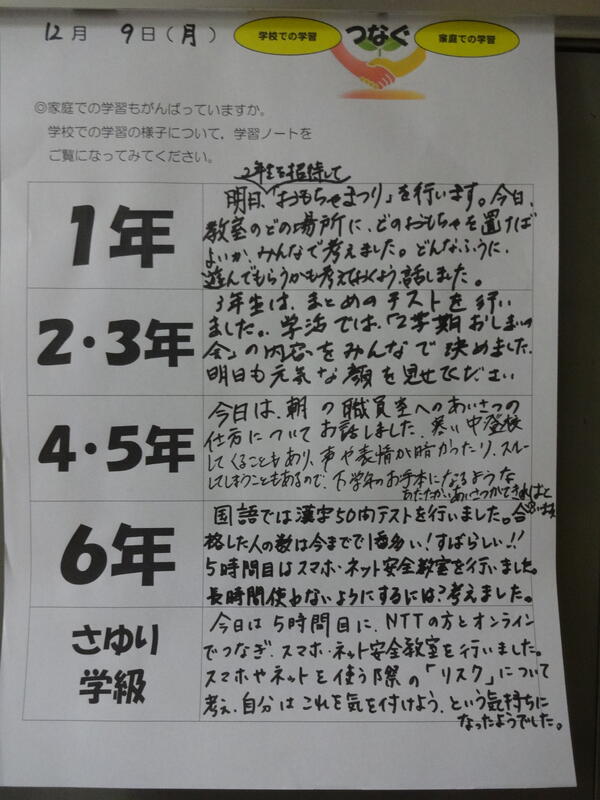 12月 9日(月)
学校での学習 つなぐ 家庭での学習
◎家庭での学習もがんばっていますか。
学校での学習の様子について，学習ノートを
ご覧になってみてください。
1年
2年生を招待して
明日、「おもちゃまつり」を行います。今日、
教室のどの場所に、どのおもちゃを置けば
よいか、みんなで考えました。どんなふうに、
遊んでもらうかも考えておくよう話しました。
2・3年
3年生は、まとめのテストを行い
ました。学活では、「2学期おしまいの
会」の内容をみんなで決めました。
明日も元気な顔を見せてください
4・5年
今日は、朝の職員室へのあいさつの
仕方についてお話しました。寒い中登校
してくることもあり、声や表情が暗かったり、スルー
してしまうこともあるので、下学年のお手本になるような
あたたかいあいさつができればと
思います
6年
国語では漢字50問テストを行いました。合
格した人の数は今までで1番多い!すばらしい!!
5時間目はスマホ・ネット安全教室を行いました。
長時間使わないようにするには?考えました。
さゆり
学級
今日は5時間目に、NTTの方とオンライン
でつなぎ、スマホ・ネット安全教室を行いました。
スマホやネットを使う際の「リスク」について
考え、自分はこれを気を付けよう、という気持ちに
なったようでした。